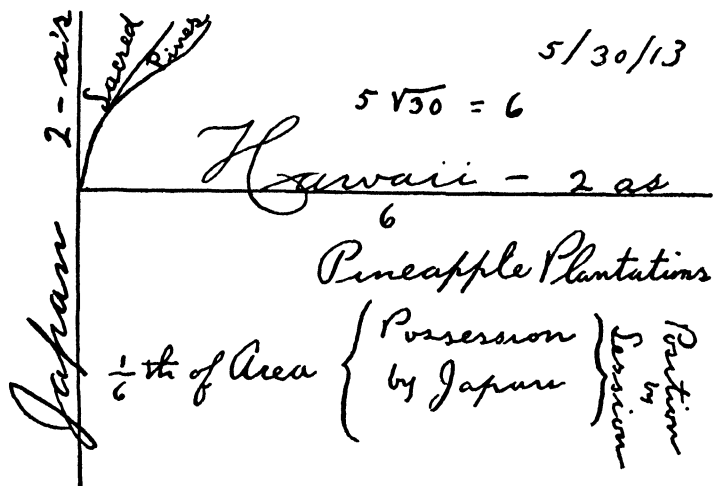 5/30/13
2-a's
Sacred
Pines
5 √30 = 6
Hawaii - 2 as
6
Japan
Pineapple Plantations
1/6 th of Area { Possession by Japan }
Position
by
Session